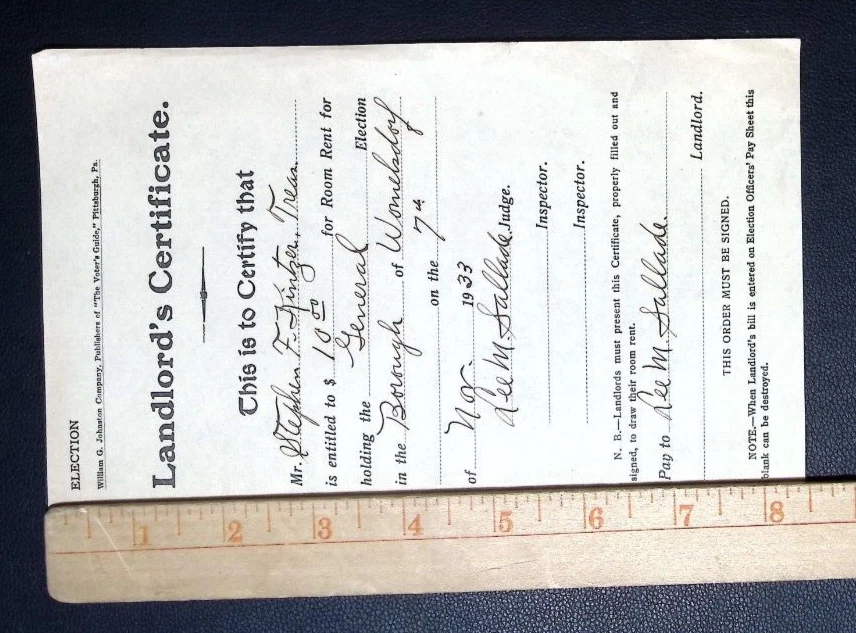 ELECTION
William G. Johnston Company, Publishers of "The Voter's Guide," Pittsburgh, Pa.
Landlord's Certificate.
This is to Certify that
Mr. Stephen F. Kintzer, Treas.
is entitled to $ 10 00 for Room Rent for
holding the General Election
in the Borough of Womelsdorf
on the 7th
of Nov. 1933
Lee M. Sallade. Judge.
Inspector.
Inspector.
N. B.—Landlords must present this Certificate, properly filled out and
signed, to draw their room rent.
Pay to Lee M. Sallade.
Landlord.
THIS ORDER MUST BE SIGNED.
NOTE.—When Landlord's bill is entered on Election Officers' Pay Sheet this
blank can be destroyed.
1 2 3 4 5 6 7 8